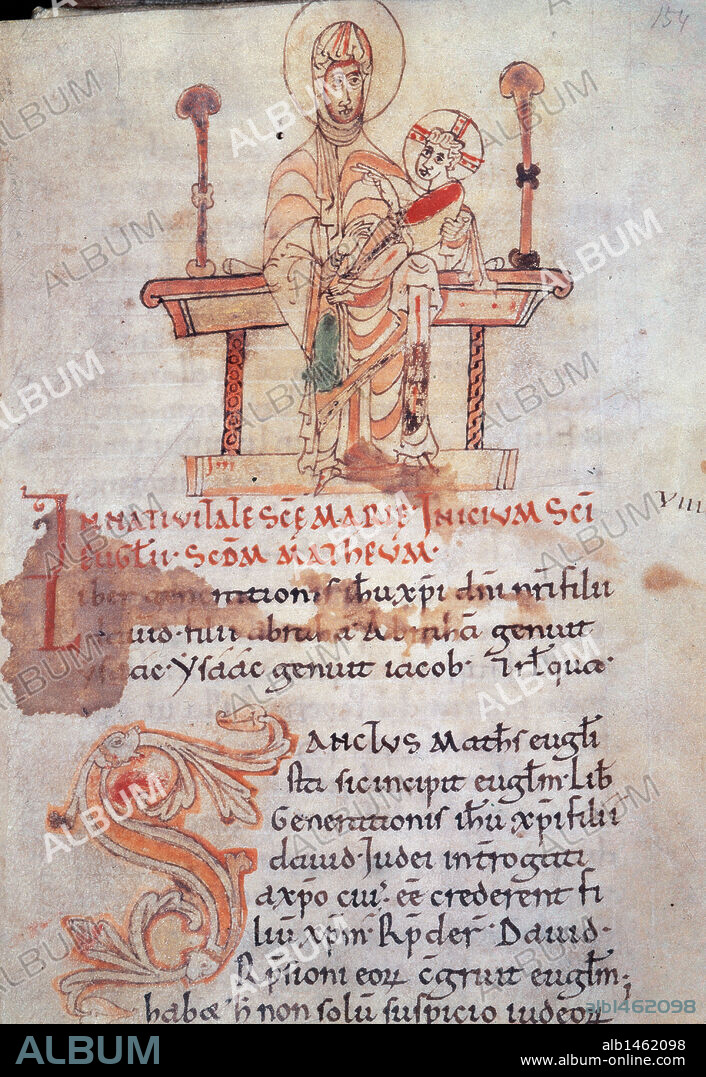 154
In natiuitate scę marie. Inicium sci
euglii. scdm matheum.
Liber generationis ihu xpi dni nri filii
dauid. filii abrahā. Abrahā genuit
ysaac. Ysaac genuit iacob. Et rl qua.
VIII
Sanctus Maths eugli
sta sic incipit euglm. Lib
Generationis ihu xpi filii
dauid. Iudei introgati
a xpo cui' eē crederent fi
liū xpm. Rpder. Dauid.
Rpsioni eorꝝ cgruit euglm;
habꝫ h non solū suspicio iudeorꝝ
ALBUM
alb1462098
www.album-online.com